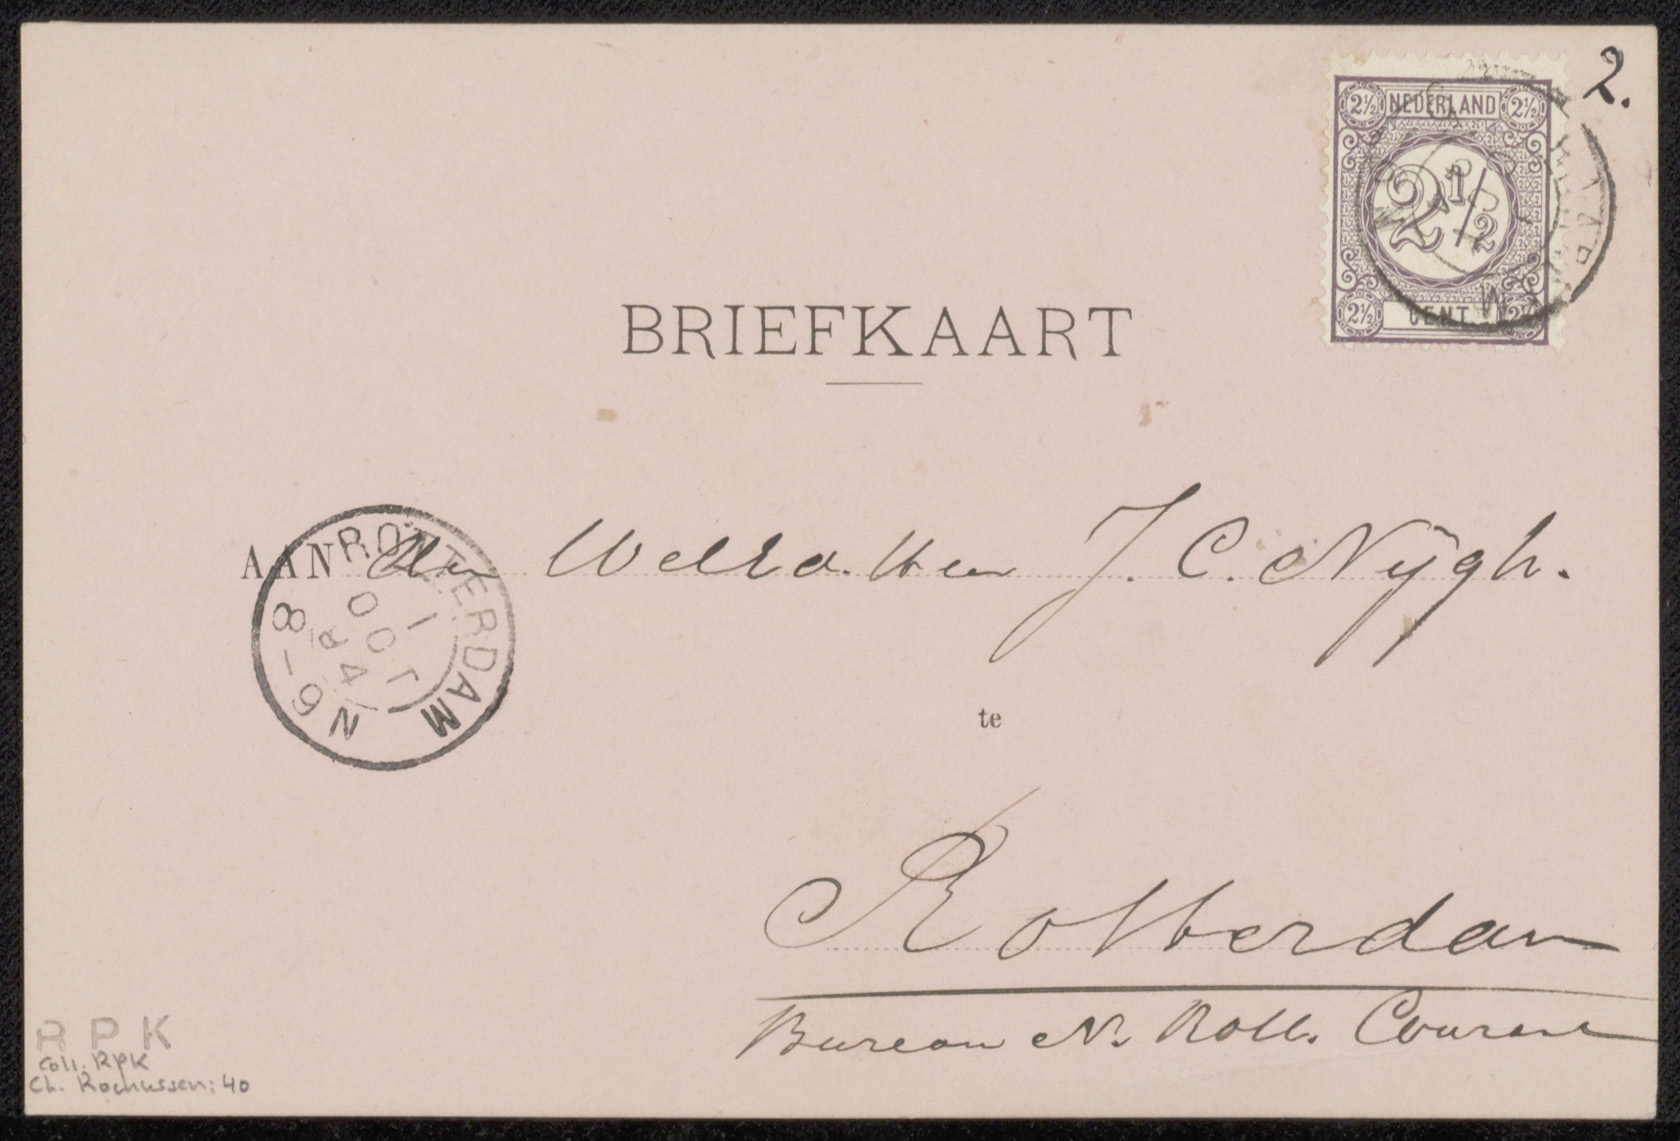 2.
2½ NEDERLAND 2½
2½
2½ CENT 2½
BRIEFKAART
AAN den WelEd. Heer J. C. Nijgh.
ROTTERDAM
1 OCT
94
N 6-8 M
te
Rotterdam
Bureau N. Rott. Courant
R P K
Coll. RPK
Ch. Rochussen: 40